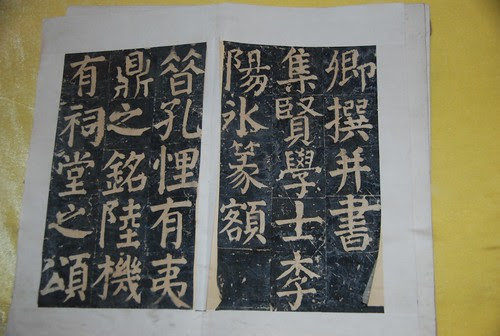 卿撰并書
集賢學士李
陽氷篆額
昔孔悝有夷
鼎之銘陸機
有祠堂之頌